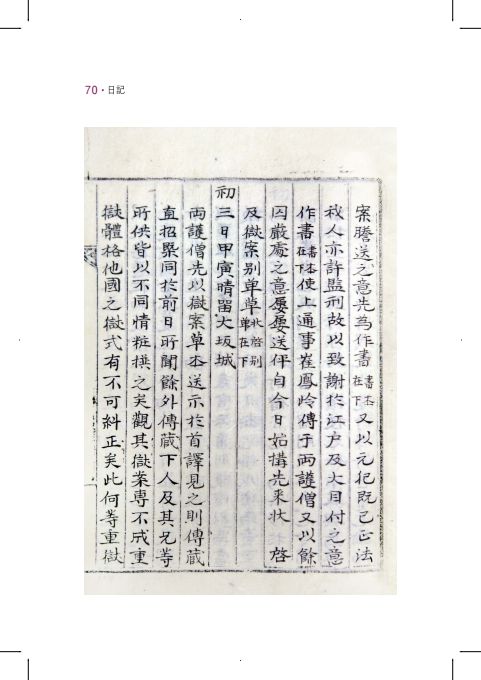 70 • 日記
案謄送之意先爲作書書本在下又以元犯旣已正法
我人亦許監刑故以致謝於江戶及大目付之意
作書書本在下使上通事崔鳳岭傳于兩護僧又以餘
囚嚴處之意屢屢送伻自今日始搆先來狀 啓
及獄案別單草狀啓別單在下
初三日甲寅晴留大坂城
兩護僧先以獄案草本送示於首譯見之則傳藏
直招槩同於前日所聞餘外傳藏下人及其兄等
所供皆以不同情粧撰之矣觀其獄案專不成重
獄體格他國之獄式有不可糾正矣此何等重獄